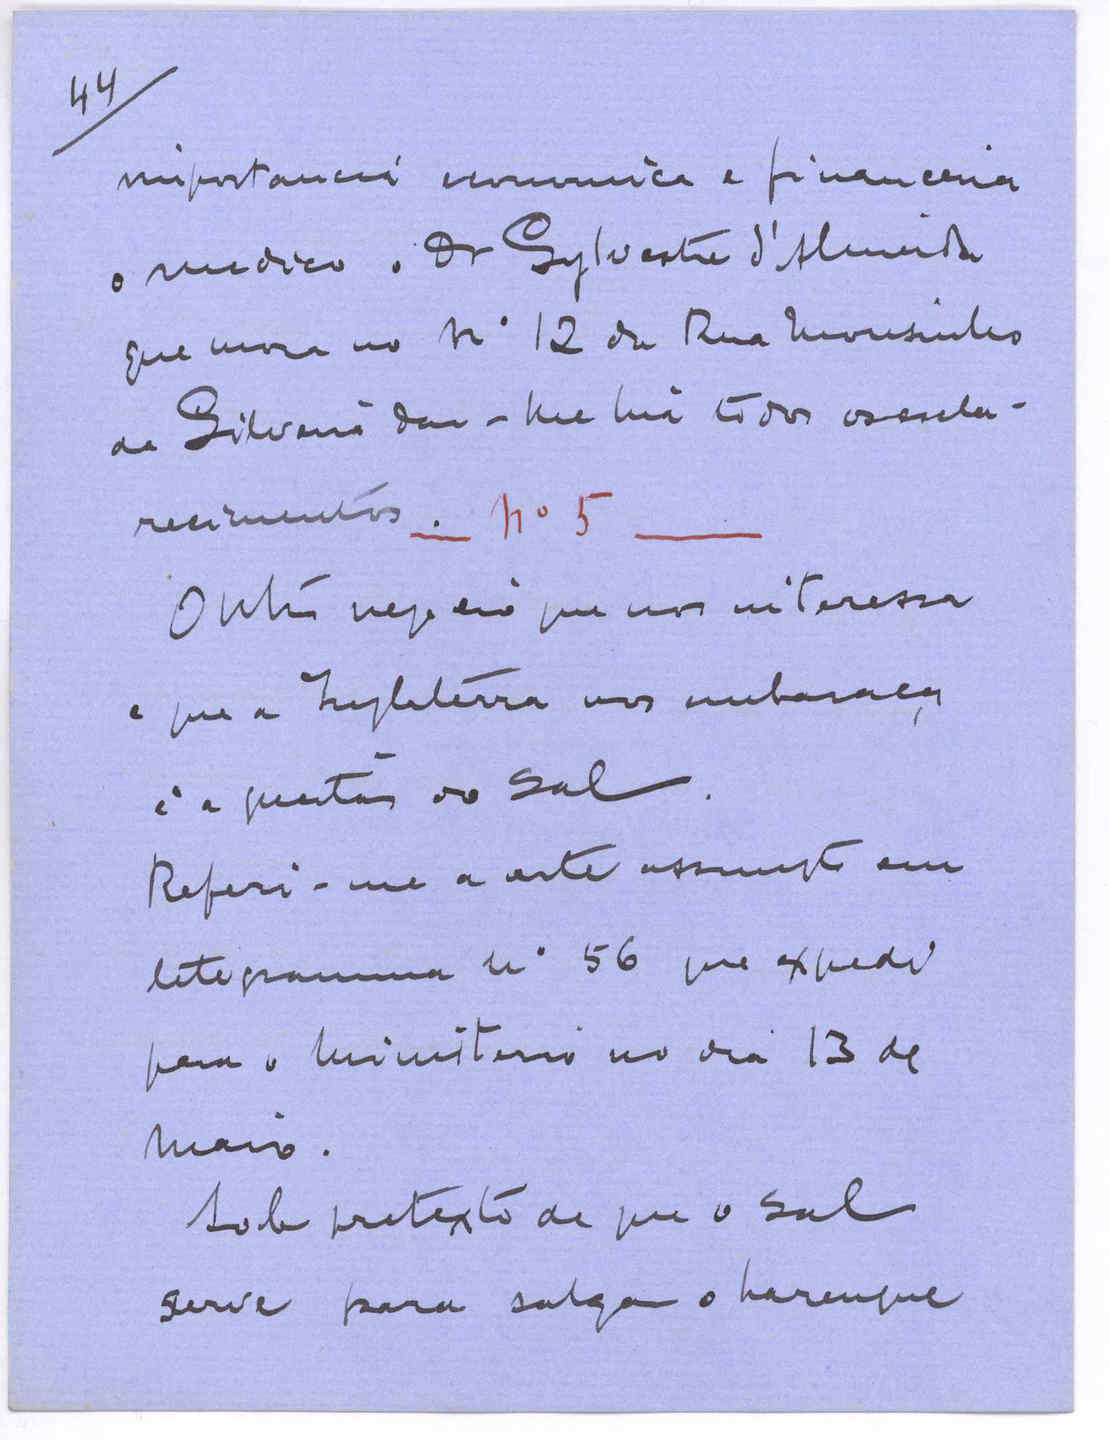 44
importancia economica e financeira
o medico o Dr Sylvestre d'Almeida
que mora no Nº 12 da Rua Mousinho
da Silveira dar-lhe há todos os escla-
recimentos. Nº 5
Outro negocio que nos interessa
e que a Inglaterra nos embaraça
é a questão do sal.
Referi-me a este assumpto em
telegramma nº 56 que expedi
para o Ministerio no dia 13 de
Maio.
Sob pretexto de que o sal
serve para salgar o harenque